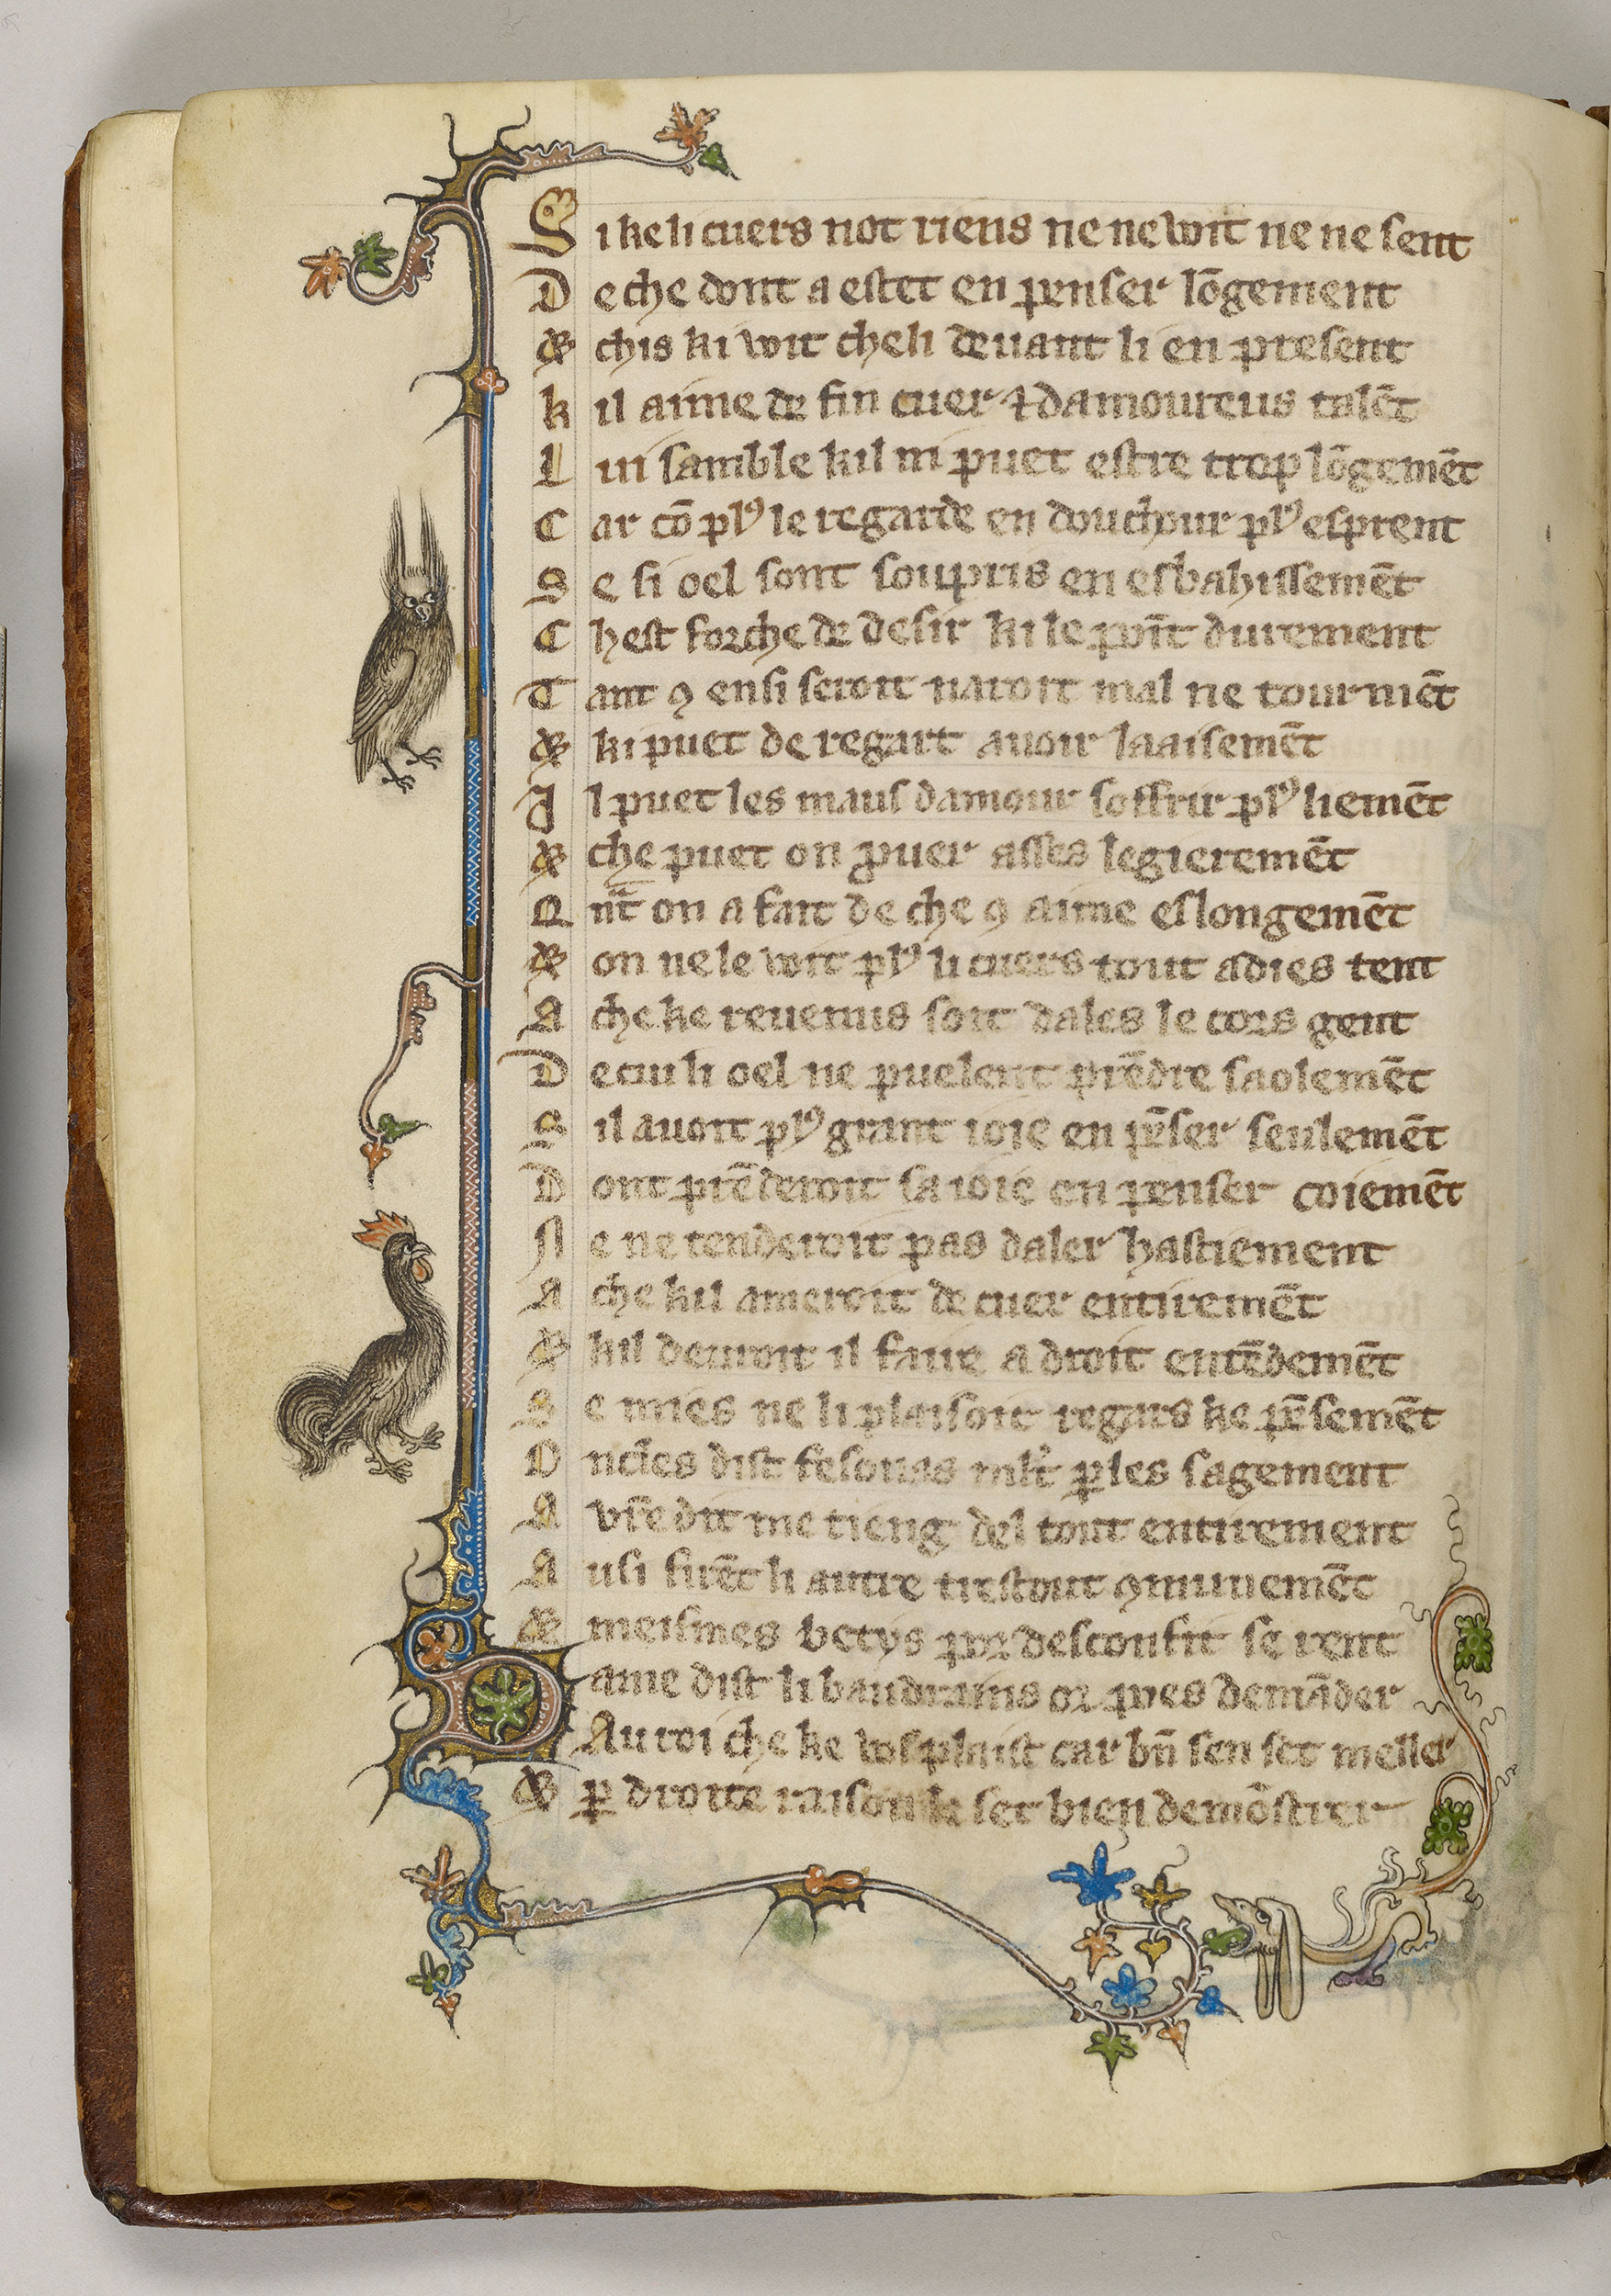 Si ke li cuers not riens ne ne woit ne ne sent
De che dont a estet en penser lōgement
& chis ki voit cheli deuant li en present
kil aime de fin cuer ⁊ damoureus talēt
Lui samble kil ni puet estre trop lōgemēt
Car cō plꝰ le regarde en douchour plꝰ esprent
Se si oel sont soupris en esbahissemēt
Chest forche de desir ki le point durement
Tant ꝯ ensi seroit naroit mal ne tourmēt
& ki puet de regart auoir laaisemēt
Il puet les maus damour soffrir plꝰ liemēt
& che puet on prouer asses legieremēt
Qn̄t on a fait de che ꝯ aime eslongemēt
& on ne le voit plꝰ li cuers tout adies tent
A che ke reuenus soit dales le cors gent
De cui li oel ne puelent prēdre saolemēt
Sil auoit plꝰ grant ioie en pēser seulemēt
Dont prēderoit sa ioie en penser coiemēt
Ne ne tenderoit pas daler hastiement
A che kil ameroit de cuer entiremēt
& kil deuroit il faire a droit entēdemēt
Se mies ne li plaisoit regars ke pēsemēt
Oncles dist fesonas ml̄t ꝑles sagement
A vr̄e dit me tieng del tout entirement
Ausi firēt li autre trestout ꝯmunemēt
& meismes betys por desconfit se rent
Dame dist li baudrains or poes demāder
Au roi che ke vos plaist car bn̄ sen set meller
& ꝑ droite raison le set bien demōstrer